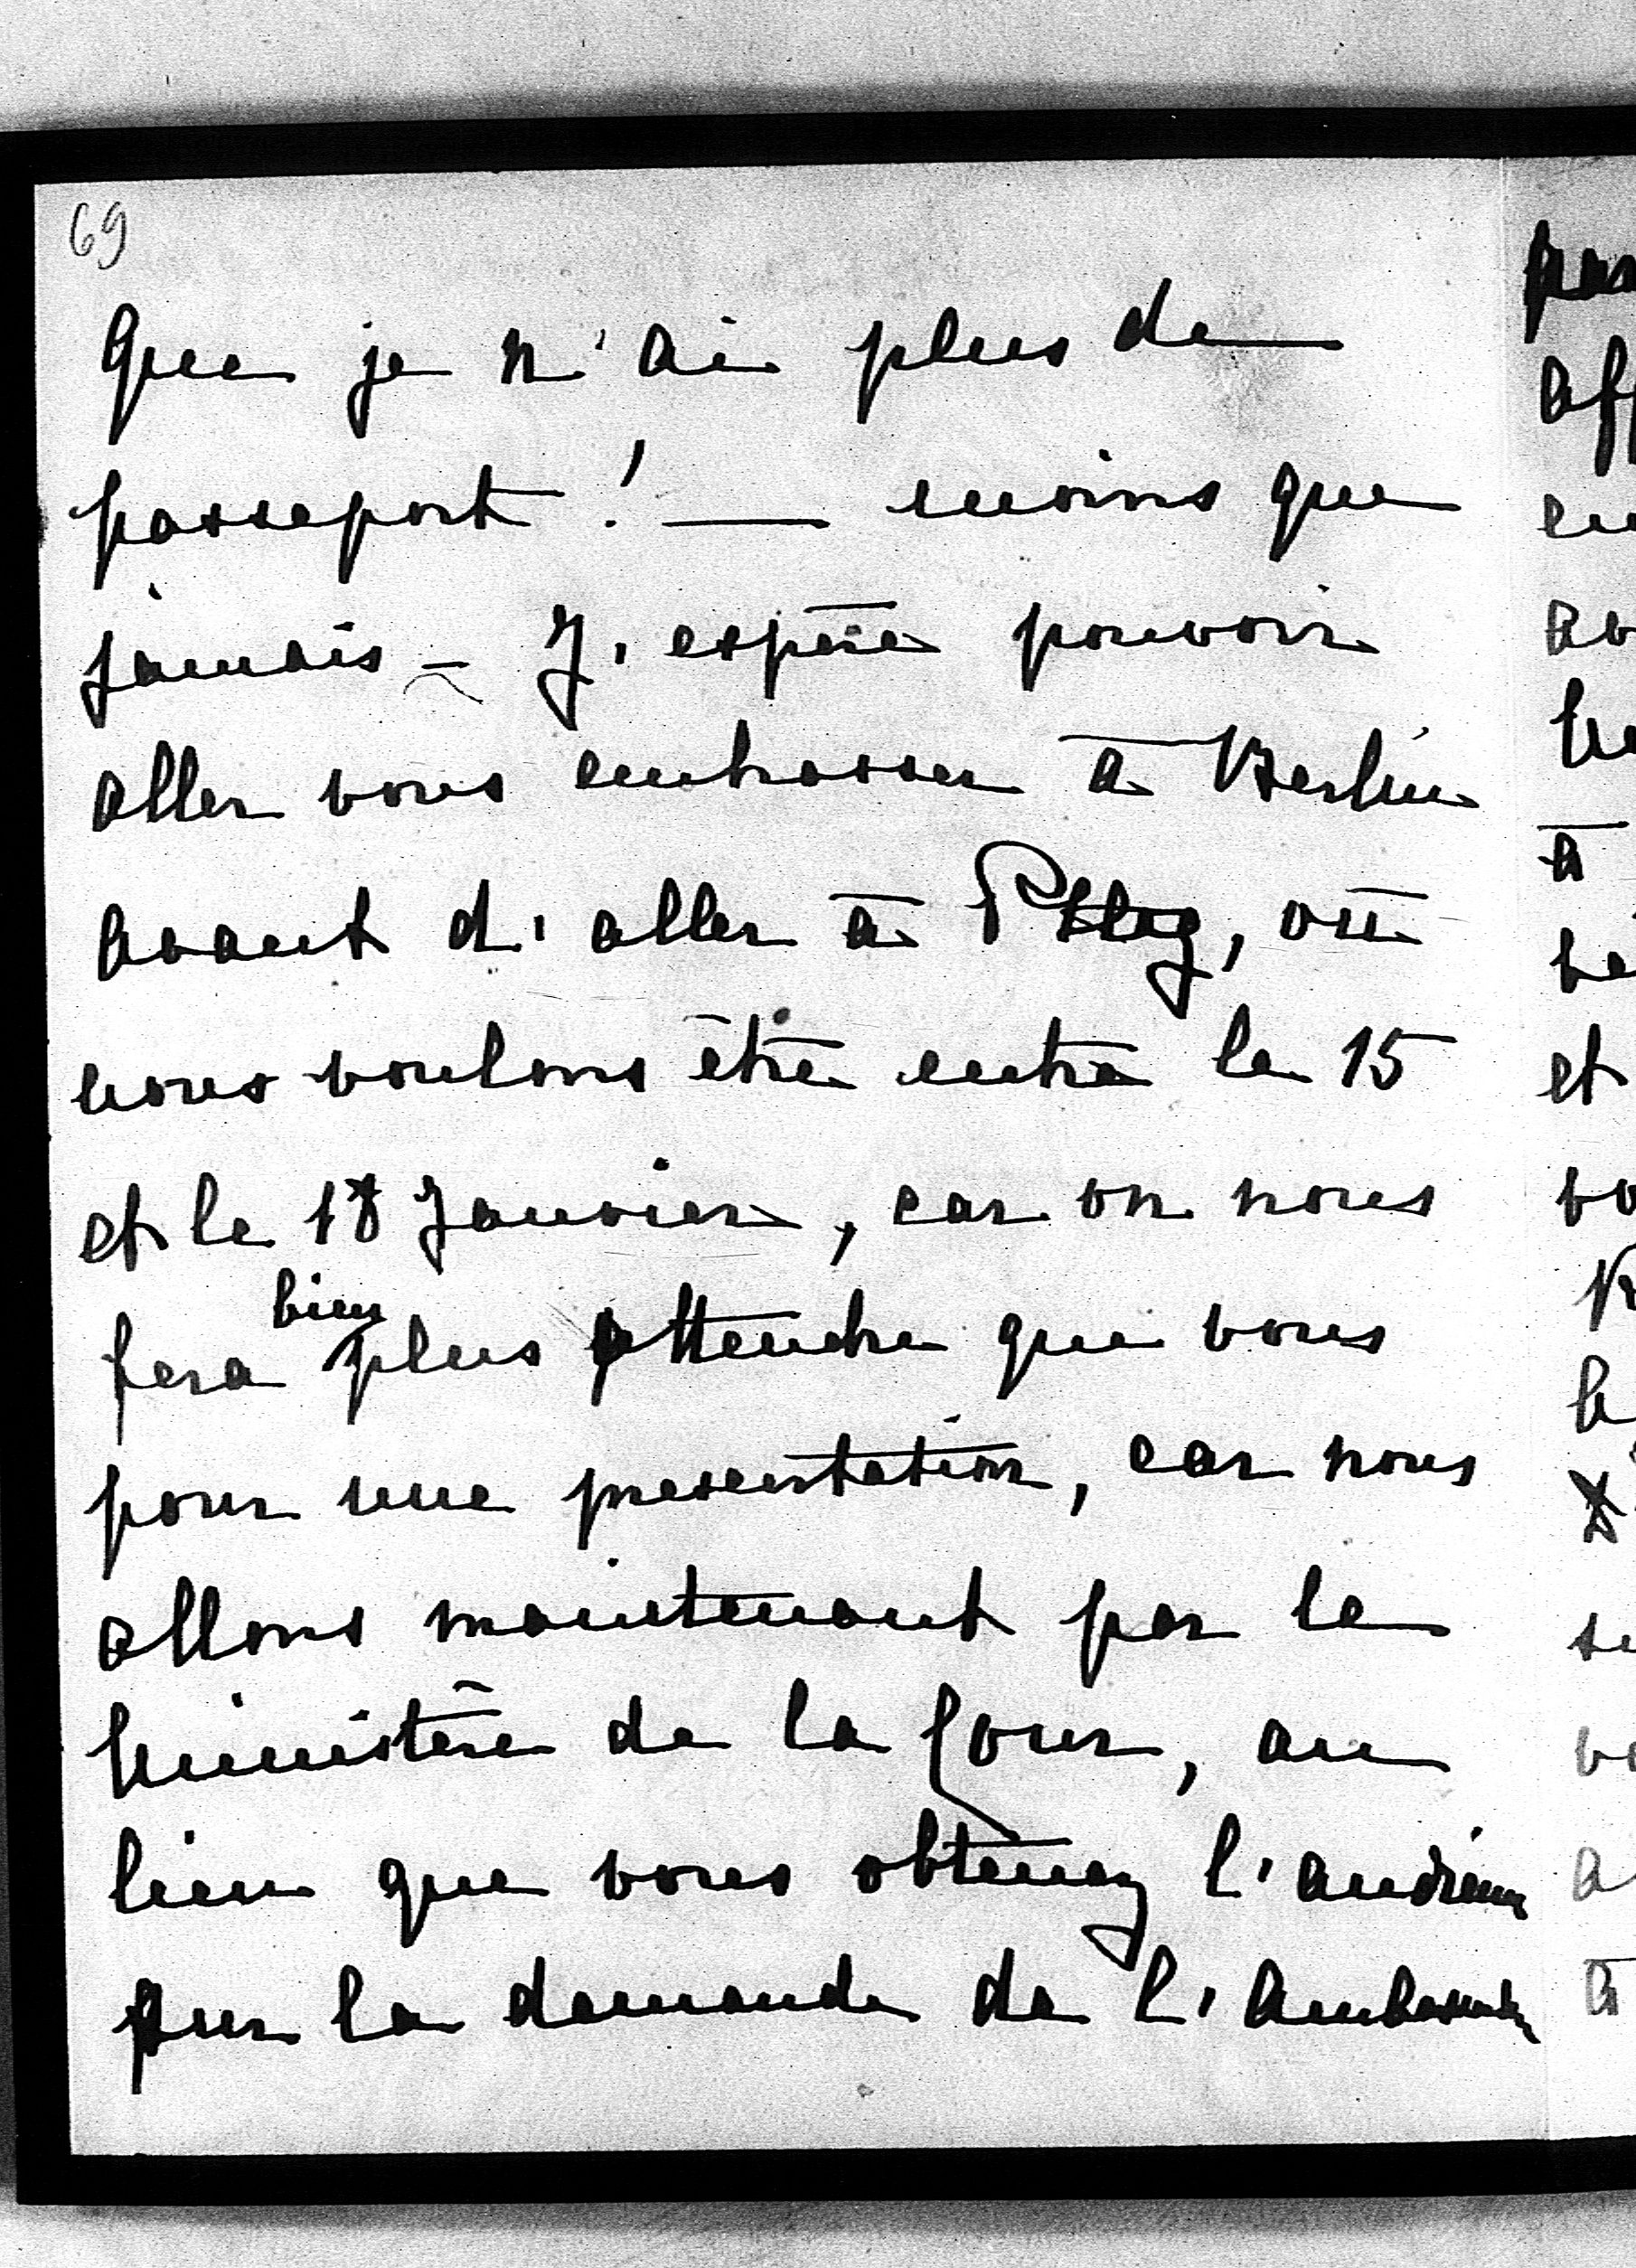 69
que je n'ai plus de
passeport ! — moins que
jamais – J'espère pouvoir
aller vous embrasser à Berlin
avant d'aller à Pbg, où
nous voulons être entre le 15
et le 18 Janvier, car on nous
bien
fera plus attendre que vous
pour une presentation, car nous
allons maintenant par le
Ministère de la Cour, au
lieu que vous obtenez l'audience
sur la demande de l'Ambassade
et
à